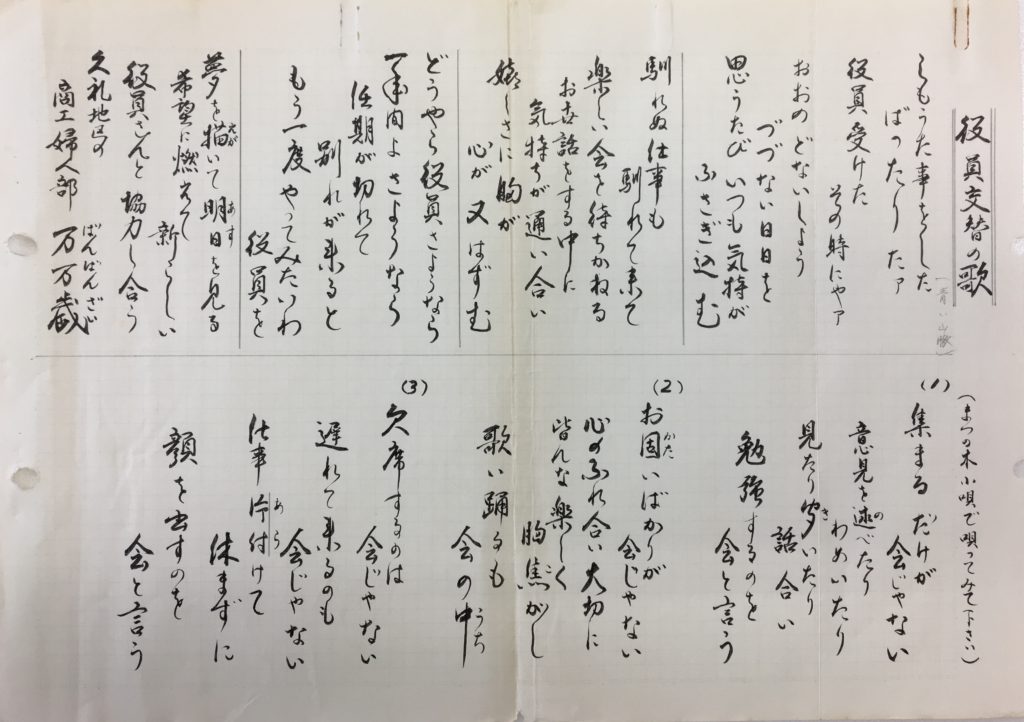 役員交替の歌
(青い山脈)
しもうた事をした
ばったりたァ
役員受けた
その時にゃァ
おおのどないしよう
つづない日日を
思うたびいつも気持が
ふさぎ込む
馴れぬ仕事も
馴れて来て
楽しい会を待ちかねる
お世話をする中に
気持ちが通い合い
嬉しさに胸が
心が又はずむ
どうやら役員さようなら
案内よさようなら
任期が切れて
別れが来ると
もう一度やってみたいわ
役員を
夢を描いて明日を見る
えが
あす
希望に燃えて
新らしい
役員さんと協力し合う
久礼地区の
商工婦人部 万万歳
ばんばんざい
(まつの木小唄で唄ってみて下さい)
(1)
集まるだけが
会じゃない
意見を述べたり
の
わめいたり
見たり聞いたり
き
話合い
勉強するのを
会と言う
(2)
お固いばかりが
かた
会じゃない
心のふれ合い大切に
皆んな楽しく
胸焦がし
こ
歌い踊るも
会の中
うち
(3)
欠席するのは
会じゃない
遅れて来るのも
会じゃない
仕事片付けて
休まずに
顔を出すのを
会と言う